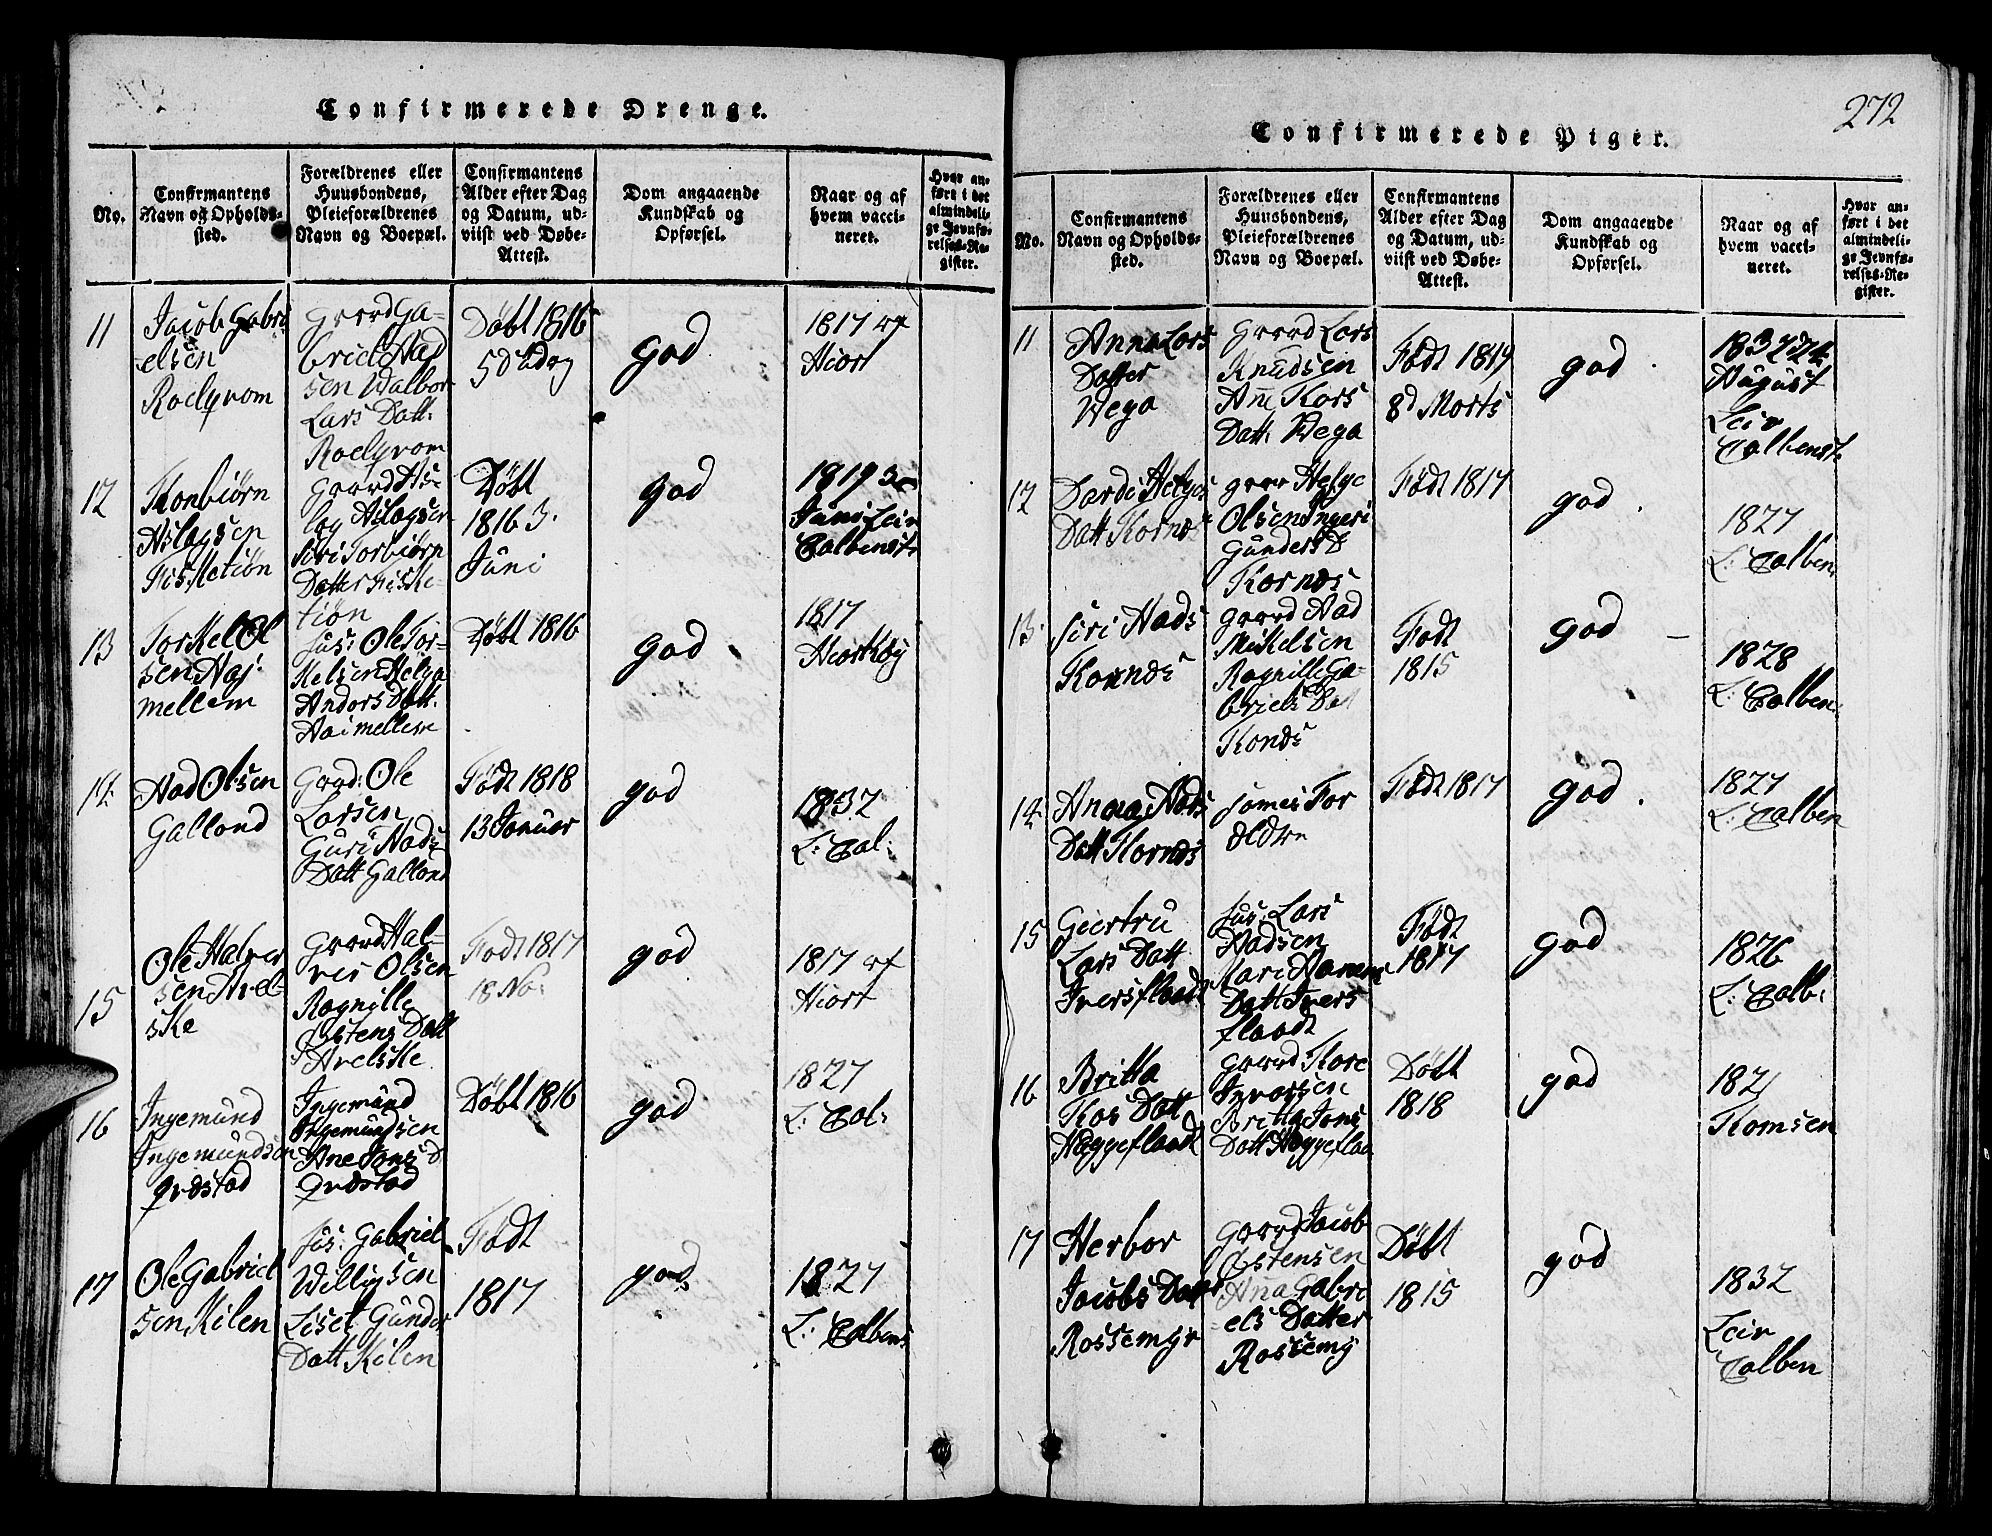 Confirmerede Drenge.
No.
Confirmantens
Navn og Opholds-
sted.
Forældrenes eller
Huusbondens,
Pleieforældrenes
Navn og Boepæl.
Confirmantens
Alder efter Dag
og Datum, ud-
viist ved Døbe-
Attest.
Dom angaaende
Kundskab og
Opførsel.
Naar og af
hvem vacci-
neret.
Hvor an-
ført i det
almindeli-
ge Jevnfø-
relses-Re-
gister.
11
Jacob Gabri
-elsen
Grvd Ga-
briel Aad
sen Walbor
Lars Datt:
Døbt 1816
god
1817 af
Hiort
12
Aslagsen
Fiskletiøn
Aslagsen
Siri Torbiørn
Datter Fiskle-
tiøn
Døbt
1816 3.
Juni
god
1819 3
Juni Leir
Calbenst
13
Torkel Ol
sen Haj-
mellem
Hus: Ole Tor-
kelsen Helga
Anders Datt.
Haimellem
Døbt 1816
god
1817
14
Aad Olsen
Galland
Grvd: Ole
Larsen
Guri Aads
Datt Galland
Født 1818
13 Januar
god
1832
L: Cal:
15
Ole Halver
sen
Grvd Hal-
ver Olsen
Ragnille
Østens Datt
Født 1817
18 No:
god
1817 af
Hiort
16
Ingemund
Ingemundsen
Ingemund
Ingemundsen
Ane Jons D
Døbt 1816
god
1827
L: Cal:
17
Ole Gabriel
sen Kilen
Hus: Gabriel
Willigsen
Liset Gunder
Datt Kilen
Født
1817
god
1827
L: Calbens
272
Confirmerede Piger.
No.
Confirmantens
Navn og Opholds-
sted.
Forældrenes eller
Huusbondens,
Pleieforældrenes
Navn og Boepæl.
Confirmantens
Alder efter Dag
og Datum, ud-
viist ved Døbe-
Attest.
Dom angaaende
Kundskab og
Opførsel.
Naar og af
hvem vacci-
neret.
Hvor an-
ført i det
almindeli-
ge Jevnfø-
relses-Re-
gister.
11
Anna Lars
Datter
Wega
Grvd Lars
Knudsen
Ane
Datt. Wega
Født 1819
8d Morts
god
1832 24
August
Leir
Calbenst
12
Helges
Datt
Helge
Olsen Ingeri
Gunders D
Født 1817
god
1827
L: Calben:
13
Siri Aads
Grvd Aad
Mikelsen
Ragnille Ga-
briels
Født
1815
god
1828
L: Calben:
14
Anna Aads
Datt
sames For
ældre
Født 1817
god
1827
L: Calben
15
Giertru
Lars Datt
Iversflaadt
Hus: Lars
Aadsen
Datt Ivers
flaadt
Født
1817
god
1826
L: Calb:
16
Britta
Datt
Heggeflaadt
Grvd
Ivarsen
Britta Jons
Datt Heggeflaa
Døbt
1818
god
182
Thomsen
17
Herbor
Jacobs Datter
Rossemyr
Grvd Jacob
Østensen
Ana Gabri
-els Datter
Rossemy
Døbt
1815
god
1832
Leir
Calben